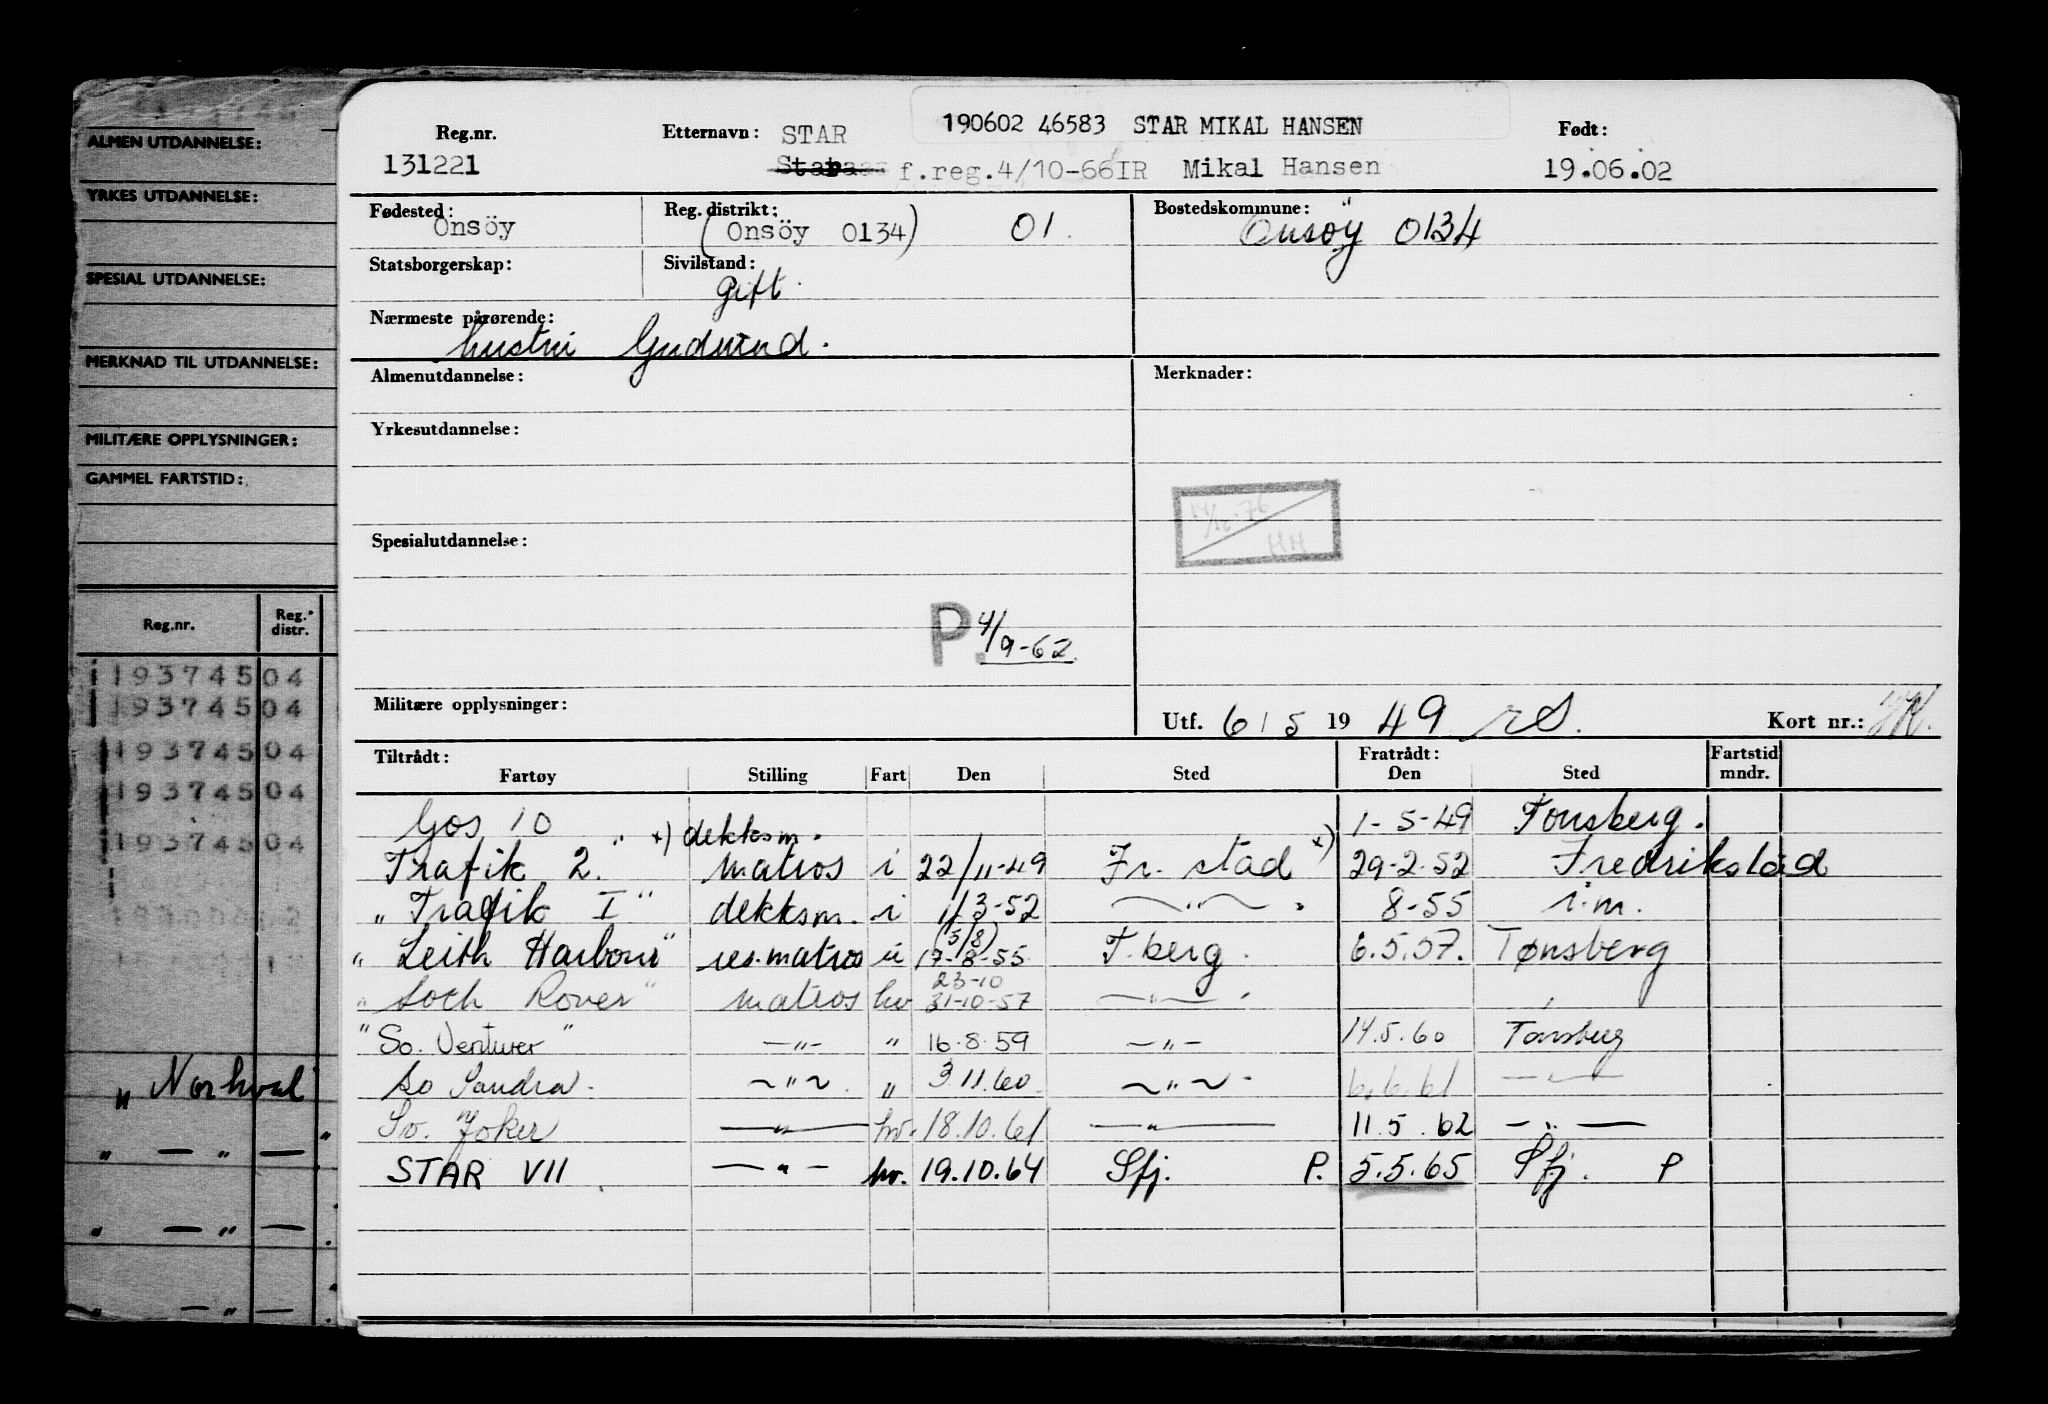 190602 46583 STAR MIKAL HANSEN
Reg.nr. Etternavn: STAR Født:
131221 f.reg.4/10-66IR Mikal Hansen 19.06.02
Fødested: Reg. distrikt: Bostedskommune:
Onsöy (Onsöy 0134) 01. Onsöy 0134
Statsborgerskap: Sivilstand:
gift
Nærmeste pårørende:
hustru Gudrund.
Almenutdannelse: Merknader:
Yrkesutdannelse:
14/12-76
HH
Spesialutdannelse:
P. 4/9-62.
Militære opplysninger: Utf. 6/5 19 49 Kort nr.:
Tiltrådt: Fratrådt: Fartstid
Fartøy Stilling Fart Den Sted Den Sted mndr.
Gos 10 1-5-49 Tønsberg.
x) dekksm. x)
Trafik 2. matros i 22/11-49 Fr. stad 29-2-52 Fredrikstad
"Trafik I" dekksm. i 1/3-52 — " — 8-55 i.m.
(5/8)
"Leith Harbour" res.matros u 17-8-55 T.berg. 6.5.57. Tønsberg
23-10
"Soth Rover" matros hv 31-10-57 — " —
"So. Venturer" — " — " 16.8.59 — " — 14.5.60 Tønsberg
So Sandra. — " — " 3.11.60. — " — 6.6.61 — " —
So. Joker — " — hv. 18.10.61 — " — 11.5.62 — " —
STAR VII — " — hv. 19.10.64 Sfj. P. 5.5.65 Sfj. P
ALMEN UTDANNELSE:
YRKES UTDANNELSE:
SPESIAL UTDANNELSE:
MERKNAD TIL UTDANNELSE:
MILITÆRE OPPLYSNINGER:
GAMMEL FARTSTID:
Reg.nr. Reg. distr.
193745 04
193745 04
193745 04
193745 04
193745 04
"Norhval"
" — " —
" — " —
" — " —